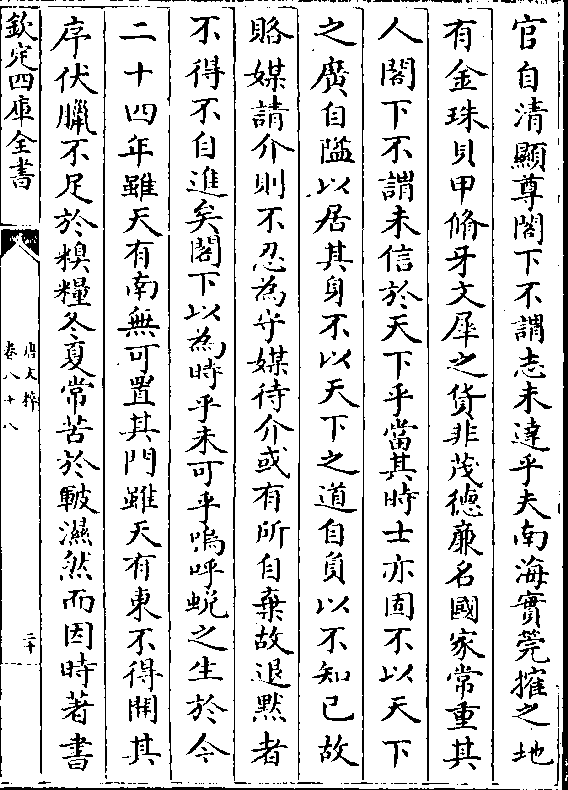 官自清顯尊閣下不謂志未達乎夫南海實筦搉之地
有金珠貝甲脩牙文犀之貨非茂德亷名國家常重其
人閣下不謂未信於天下乎當其時士亦固不以天下
之廣自隘以居其身不以天下之道自負以不知已故
賂媒請介則不忍為守媒待介或有所自棄故退黙者
不得不自進矣閣下以為時乎未可乎嗚呼蛻之生於今
二十四年雖天有南無可置其門雖天有東不得開其
序伏臘不足於糗糧冬夏常苦於皸濕然而因時著書
欽定四庫全書
唐文粹
卷八十八
二十